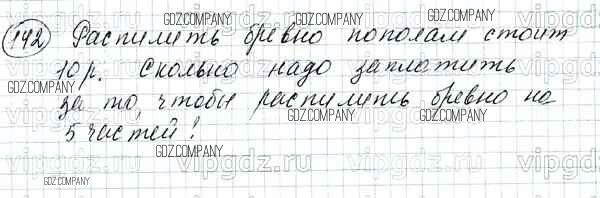 142 Распилить бревно пополам стоит
10 р. Сколько надо заплатить
за то, чтобы распилить бревно на
5 частей!
GDZ.COMPANY GDZ.COMPANY GDZ.COMPANY
GDZ.COMPANY GDZ.COMPANY
GDZ.COMPANY GDZ.COMPANY GDZ.COMPANY
GDZ.COMPANY
GDZ.COMPANY
vipgdz.ru vipgdz.ru